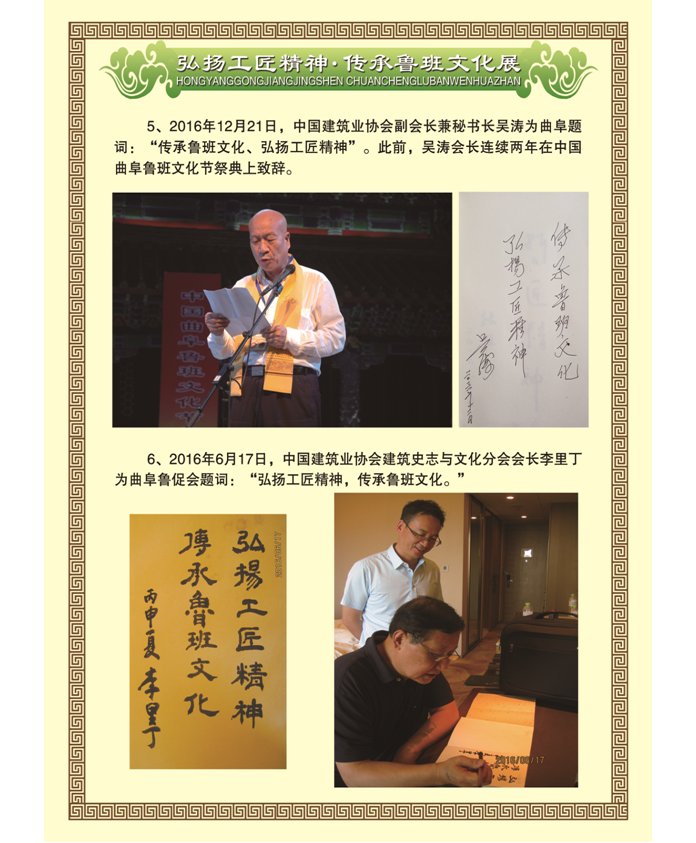 弘扬工匠精神·传承鲁班文化展
HONGYANGGONGJIANGJINGSHEN CHUANCHENGLUBANWENHUAZHAN
5、2016年12月21日，中国建筑业协会副会长兼秘书长吴涛为曲阜题
词：“传承鲁班文化、弘扬工匠精神”。此前，吴涛会长连续两年在中国
曲阜鲁班文化节祭典上致辞。
中国曲阜鲁班文化节
传承鲁班文化
弘揚工匠精神
吴涛
二〇一六年十二月
6、2016年6月17日，中国建筑业协会建筑史志与文化分会会长李里丁
为曲阜鲁促会题词：“弘扬工匠精神，传承鲁班文化。”
弘揚工匠精神
傳承魯班文化
丙申夏 李里丁
2016/06/17
2016/06/17